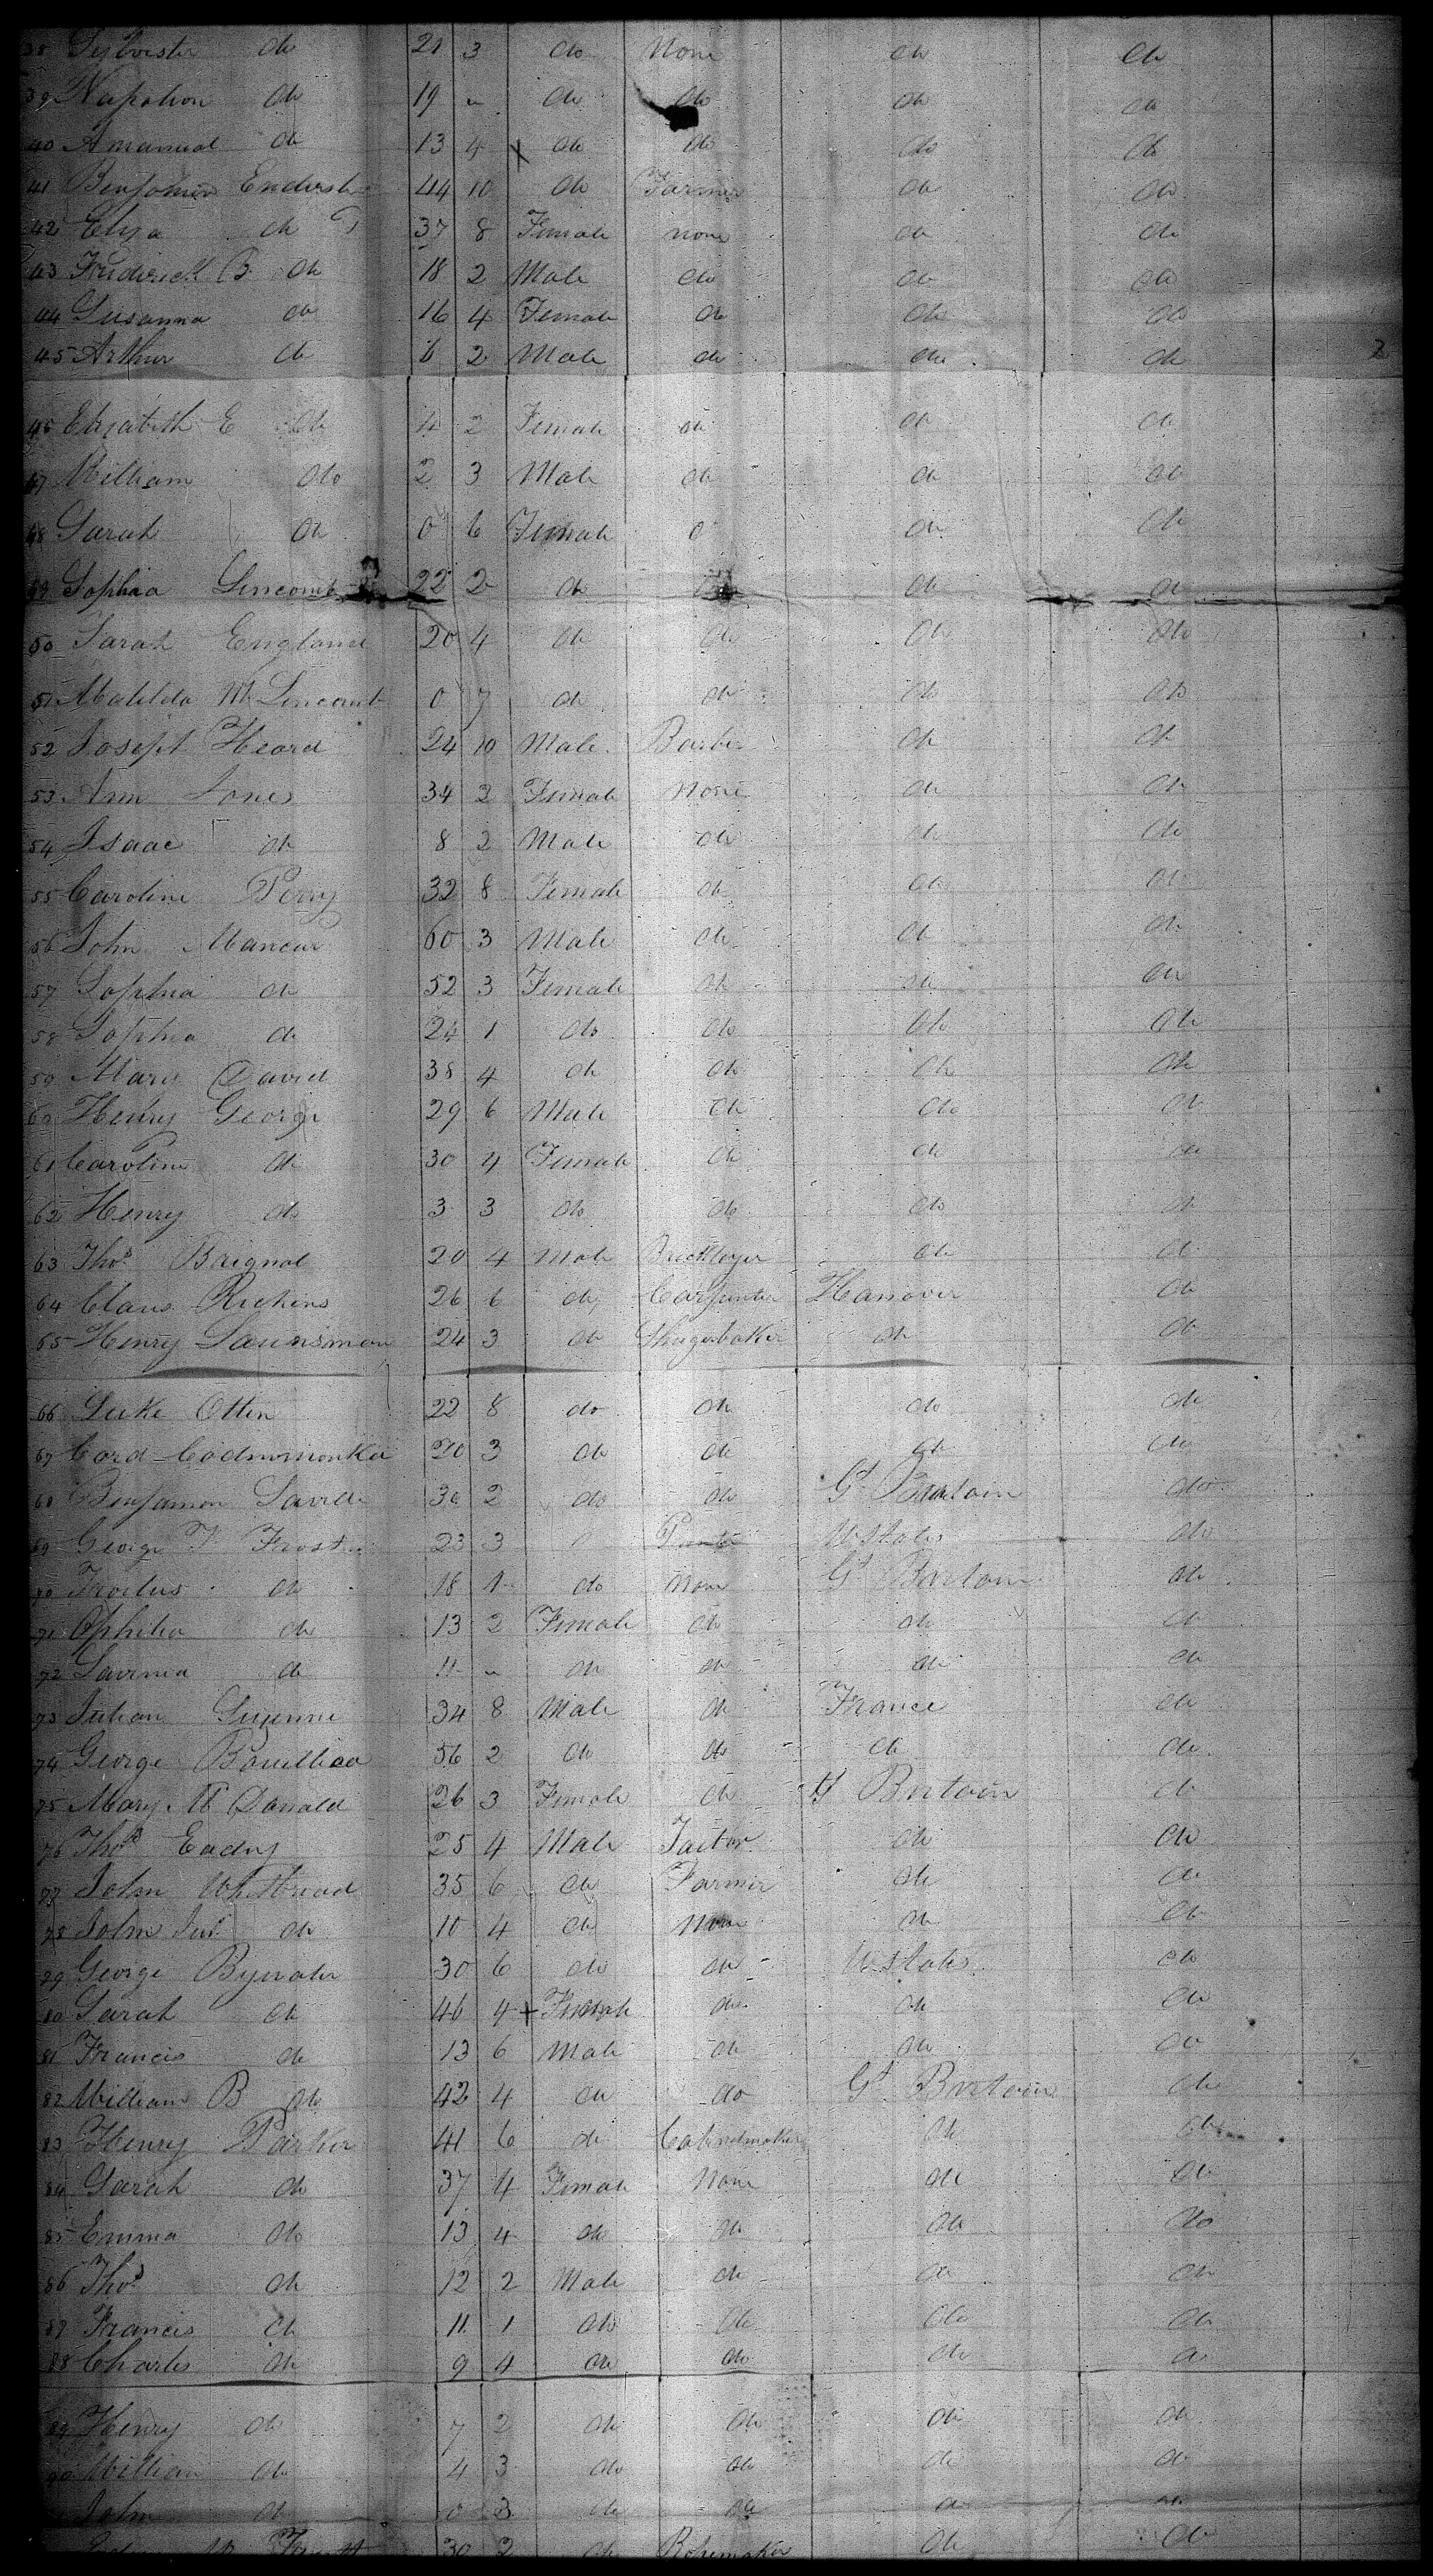 38 Sylvester do 21 3 do None do do
39 Napolion do 19 " do do do do
40 Amanual do 13 4 x do do do do
41 Benjamin Enders 44 10 do Farmer do do
42 Eliza do 37 8 Female none do do
43 Frederick B do 18 2 Male do do do
44 Susanna do 16 4 Female do do do
45 Arthur do 6 2 Male do do do
46 Elizabeth E do 4 2 Female do do do
47 William do 2 3 Male do do do
48 Sarah do 0 6 Female do do
49 Sophia Lincomb 22 2 do do do
50 Sarah England 20 4 do do do do
51 Matilda M Lincomb 0 7 do do do do
52 Joseph Heard 24 10 Male Barber do do
53 Ann Jones 34 2 Female None do do
54 Isaac do 8 2 Male do do do
55 Caroline Perry 32 8 Female do do do
56 John Mancur 60 3 Male do do do
57 Sophia do 52 3 Female do do do
58 Sophia do 24 1 do do do do
59 Mary David 38 4 do do do do
60 Henry George 29 6 Male do do do
61 Caroline do 30 4 Female do do do
62 Henry do 3 3 do do do do
63 Thos Baignal 20 4 Male Bricklayer do do
64 Claus Richins 26 6 do Carpenter Hanover do
65 Henry Saunsman 24 3 do Shugerbaker do do
66 Luke Otten 22 8 do do do do
67 Cord 20 3 do do do do
68 Benjamin Saville 30 2 do do Gt Britain do
69 George F Frost 23 3 U States do
70 Troilus do 18 1 do None Gt Britain do
71 Ophelia do 13 2 Female do do do
72 Lavinia do 11 " do do do do
73 Julian 34 8 Male do France do
74 George 56 2 do do do do
75 Mary Mc Donald 26 3 Female do Gt Britain do
76 Thos Eadey 25 4 Male do do
77 John Whitbread 35 6 do Farmer do do
78 John Jur do 10 4 do None do do
79 George Bywater 30 6 do do U States do
80 Sarah do 46 4 + Female do do do
81 Francis do 13 6 Male do do do
82 William B do 42 4 do do Gt Britain do
83 Henry Parker 41 6 do Cabinetmaker do do
84 Sarah do 37 4 Female None do do
85 Emma do 13 4 do do do do
86 Thos do 12 2 Male do do do
87 Francis do 11 1 do do do do
88 Charles do 9 4 do do do do
89 Henry do 7 2 do do do do
90 William do 4 3 do do do do
John do 0 3 do do do do
30 2 do Ropemaker do do